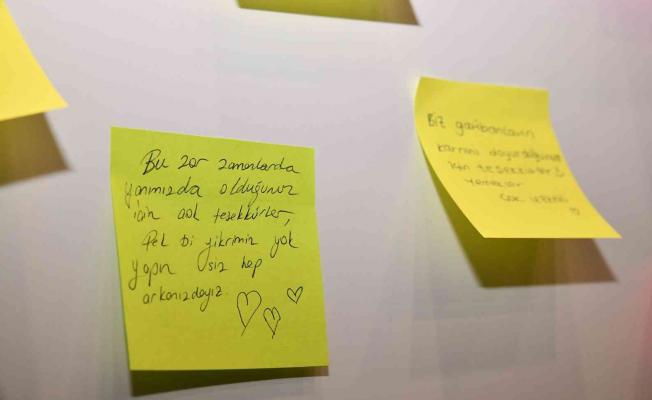 Bu zor zamanlarda
yanımızda olduğunuz
için çok teşekkürler,
Pek bi fikrimiz yok
yapın siz hep
arkanızdayız.
Biz garibanların
karnını doyurduğunuz
için teşekkürler :)
Yemekler
çok lezzetli